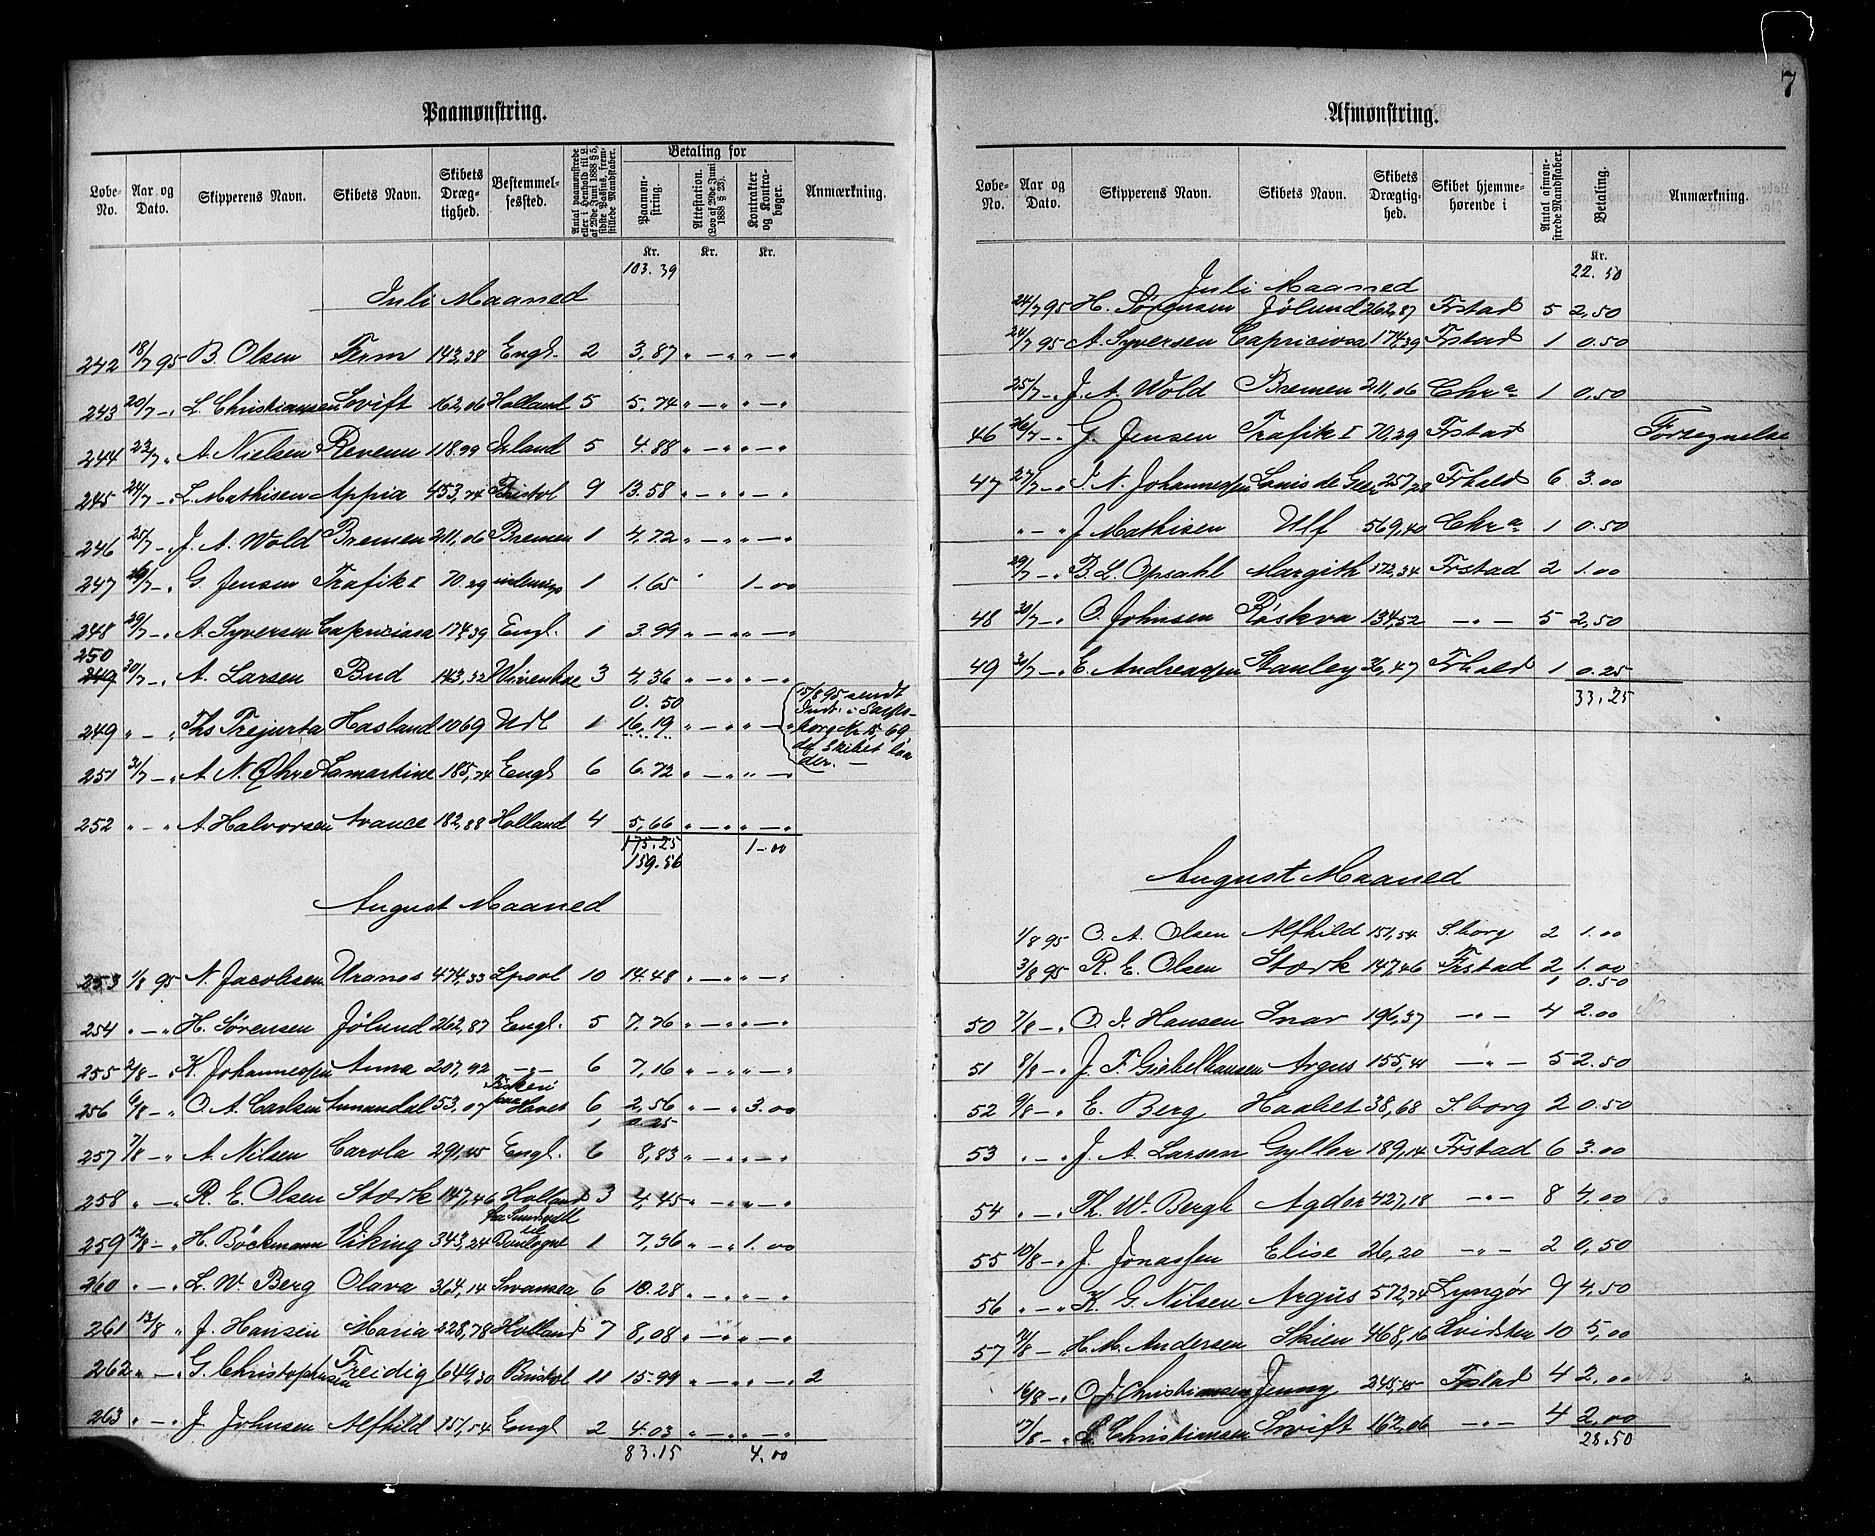 7
Paamønstring.
Løbe-No. | Aar og Dato. | Skipperens Navn. | Skibets Navn. | Skibets Drægtighed. | Bestemmelsessted. | Antal paamønstrede eller i Henhold til L. af 29de Juni 1888 § 5, sidste Passus, fremstillede Mandskaber. | Betaling for | Paamønstring. | Attestation. (Lov af 29de Juni 1888 § 23). | Kontrakter og Kontrabøger. | Anmærkning.
Kr. Kr. Kr.
103.39
Juli Maaned
242 18/7 95 B. Olsen Ferm 143,38 Engl. 2 3.87 " — " " — "
243 20/7 — " L. Christiansen Svift 162,06 Holland 5 5.74 " — " " — "
244 23/7 " A. Nielsen Revenu 118.99 Irland 5 4.88 " — " " — "
245 24/7 — " L. Mathisen Appia 453,74 Bristol 9 13.58 " — " " — "
246 25/7 — " J. A. Wold Bremen 211,06 Bremen 1 4,72 " — " " — "
247 26/7 — " G. Jensen Trafik I 70.29 indenrigs 1 1.65 " 1-00
248 29/7 — " A. Syversen Capriciosa 174.39 Engl. 1 3.99 " — " " — "
250
249 30/7 — " A. Larsen Bud 143,32 Wivenhoe 3 4,36 " — " " — "
0.50
249 " — " Ths Trejurta Hasland 1069 Udl 1 16,19 " — " " — " 15/8 95 sendt
251 31/7 — " A. N. Øhre Lamartine 185,74 Engl 6 6.72 " — " " — "
252 " — " A. Halvorsen Avance 182,88 Holland 4 5,66 " — " " — "
175.25 1-00
159.56
August Maaned
253 1/8 95 N. Jacobsen Uranos 474,33 Lpool 10 14.48 " — " " — "
254 " — " H. Sørensen Jølund 262,87 Engl. 5 7.76 " — " " — "
255 2/8 — " K. Johannessen Anna 207,92 — " — 6 7,16 " — " " — "
256 6/8 — " O. A. Carlsen Annandal 53,07 Fiskeri paa Havet 6 2,56 " — " 3.00
1 0.25
257 7/8 — " A. Nilsen Carola 291,45 Engl. 6 8,83 " — " " — "
258 " — " R. E. Olsen Stærk 147,46 Holland 3 4,45 " — " " — "
259 12/8 — " H. Böckmann Viking 343,24 fra Sundsvall til Boulogne 1 7,36 " — " 1.00
260 " — " L. W. Berg Olava 364,14 Swansea 6 10.28 " — " " — "
261 13/8 " J. Hansen Maria 228,78 Holland 7 8,08 " — " " — "
262 " — " G. Christophersen Freidig 649,30 Bristol 11 15.99 " — " " — " 2
263 " — " J. Johnsen Alfhild 151,54 Engl 2 4.03 " — " " — "
83.15 4.00
Afmønstring.
Løbe-No. | Aar og Dato. | Skipperens Navn. | Skibets Navn. | Skibets Drægtighed. | Skibet hjemmehørende i | Antal afmønstrede Mandskaber. | Betaling. | Anmærkning.
Kr.
22.50
Juli Maaned
24/7 95 H. Sørensen Jølund 262,87 Frstad 5 2,50
24/7 95 A. Syversen Capriciosa 174,39 Frstad 1 0.50
25/7 — " J. A. Wold Bremen 211,06 Chra 1 0.50
46 26/7 — " G. Jensen Trafik I 70.29 Frstad Forsegnelse
47 27/7 — " J. N. Johannessen Louis de Geer 257,28 Frhald 6 3.00
" — " J. Mathisen Ulf 569,40 Chra 1 0.50
29/7 — " B. L. Opsahl Margith 172,34 Frstad 2 1.00
48 30/7 — " O. Johnsen Røskva 134,52 — " — 5 2,50
49 31/7 — " E. Andreassen Stanley 26,47 Frhald 1 0.25
33.25
August Maaned
1/8 95 O. A. Olsen Alfhild 151,54 S.borg 2 1.00
3/8 95 R. E. Olsen Stærk 147,46 Frstad 2 1.00
1 0.50
50 7/8 — " O. J. Hansen Snar 196,37 — " — 4 2.00
51 8/8 — " J. F. Giebelhausen Argus 155,41 — " — 5 2.50
52 9/8 — " E. Berg Haabet 38,68 S.borg 2 0.50
53 " — " J. A. Larsen Gyller 189,14 Frstad 6 3.00
54 " — " Th. W. Bergh Agder 427,18 — " — 8 4,00
55 10/8 — " J. Jonassen Elise 26,20 — " — 2 0,50
56 " — " K. G. Nilsen Argus 572,74 Lyngør 9 4,50
57 12/8 — " H. M. Andersen Skien 468,16 Hvidsten 10 5,00
16/8 — " O. J. Christiansen Jenny 245,45 Frstad 4 2,00
17/8 — " L. Christiansen Swift 162,06 — " — 4 2,00
28.50